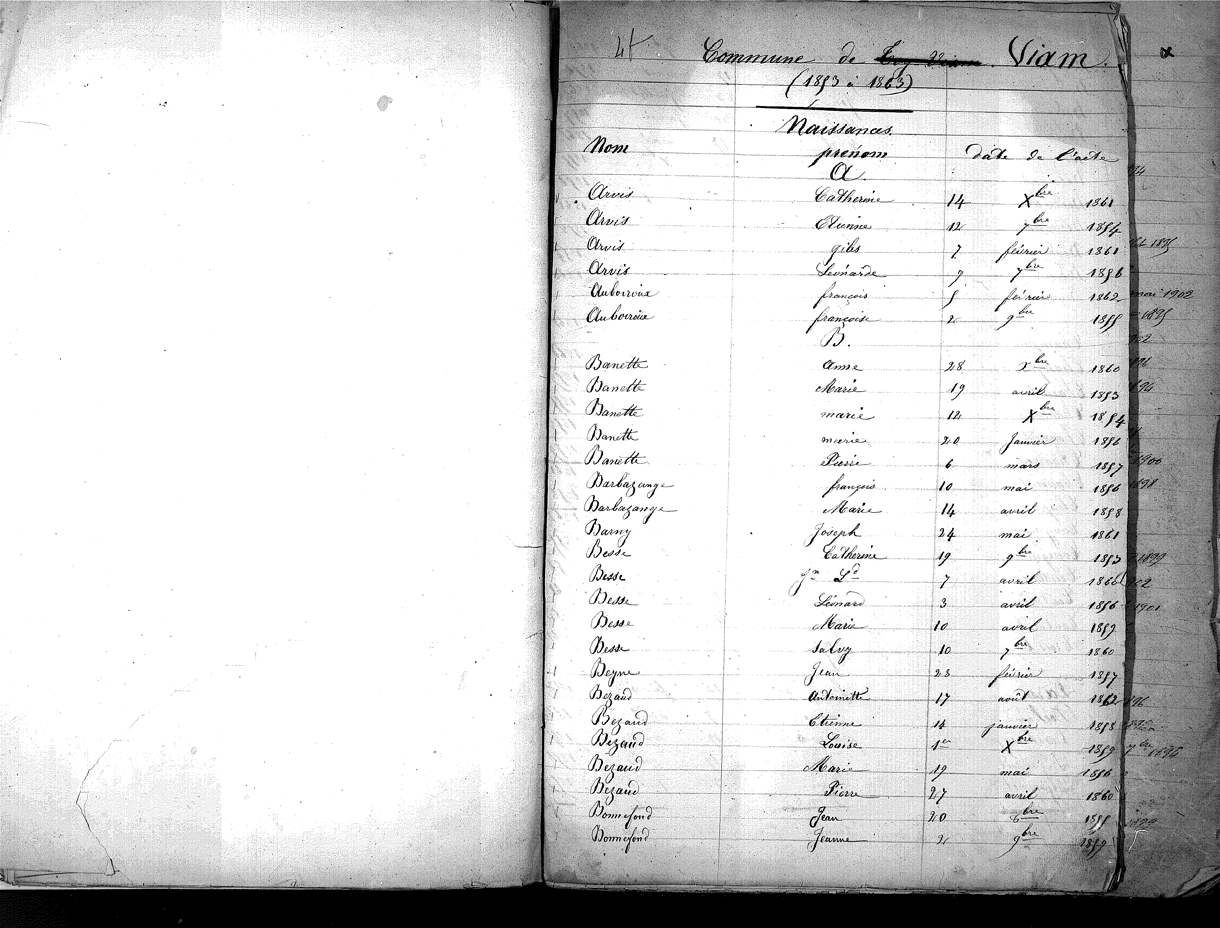 Commune de Toy-Viam Viam.
(1853 à 1863)
Naissances
Nom prénom date de l'acte
A.
Arvis Catherine 14 Xbre 1861
Arvis Etienne 12 7bre 1854
Arvis giles 7 février 1861
Arvis Léonarde 9 7bre 1856
Auboiroux françois 5 février 1862
Auboiroux françoise 2 9bre 1855
B.
Banette anne 28 xbre 1860
Banette Marie 19 avril 1853
Banette marie 12 Xbre 1854
Banette marie 20 Janvier 1856
Banette Pierre 6 mars 1857
Barbazange françois 10 mai 1856
Barbazange Marie 14 avril 1858
Barny Joseph 24 mai 1861
Besse Catherine 19 9bre 1853
Besse Jn Ld 7 avril 186
Besse Léonard 3 avril 1856
Besse Marie 10 avril 1859
Besse Salvy 10 7bre 1860
Beyne Jean 28 février 1857
Bezaud Antoinette 17 août 1862
Bezaud Etienne 14 janvier 1858
Bezaud Louise 1er Xbre 1859
Bezaud Marie 19 mai 1856
Bezaud Pierre 27 avril 1860
Bonnefond Jean 20 8bre 1855
Bonnefond Jeanne 2 9bre 1859
mai 1902
1900
1898
1899
1901
7bre 1896